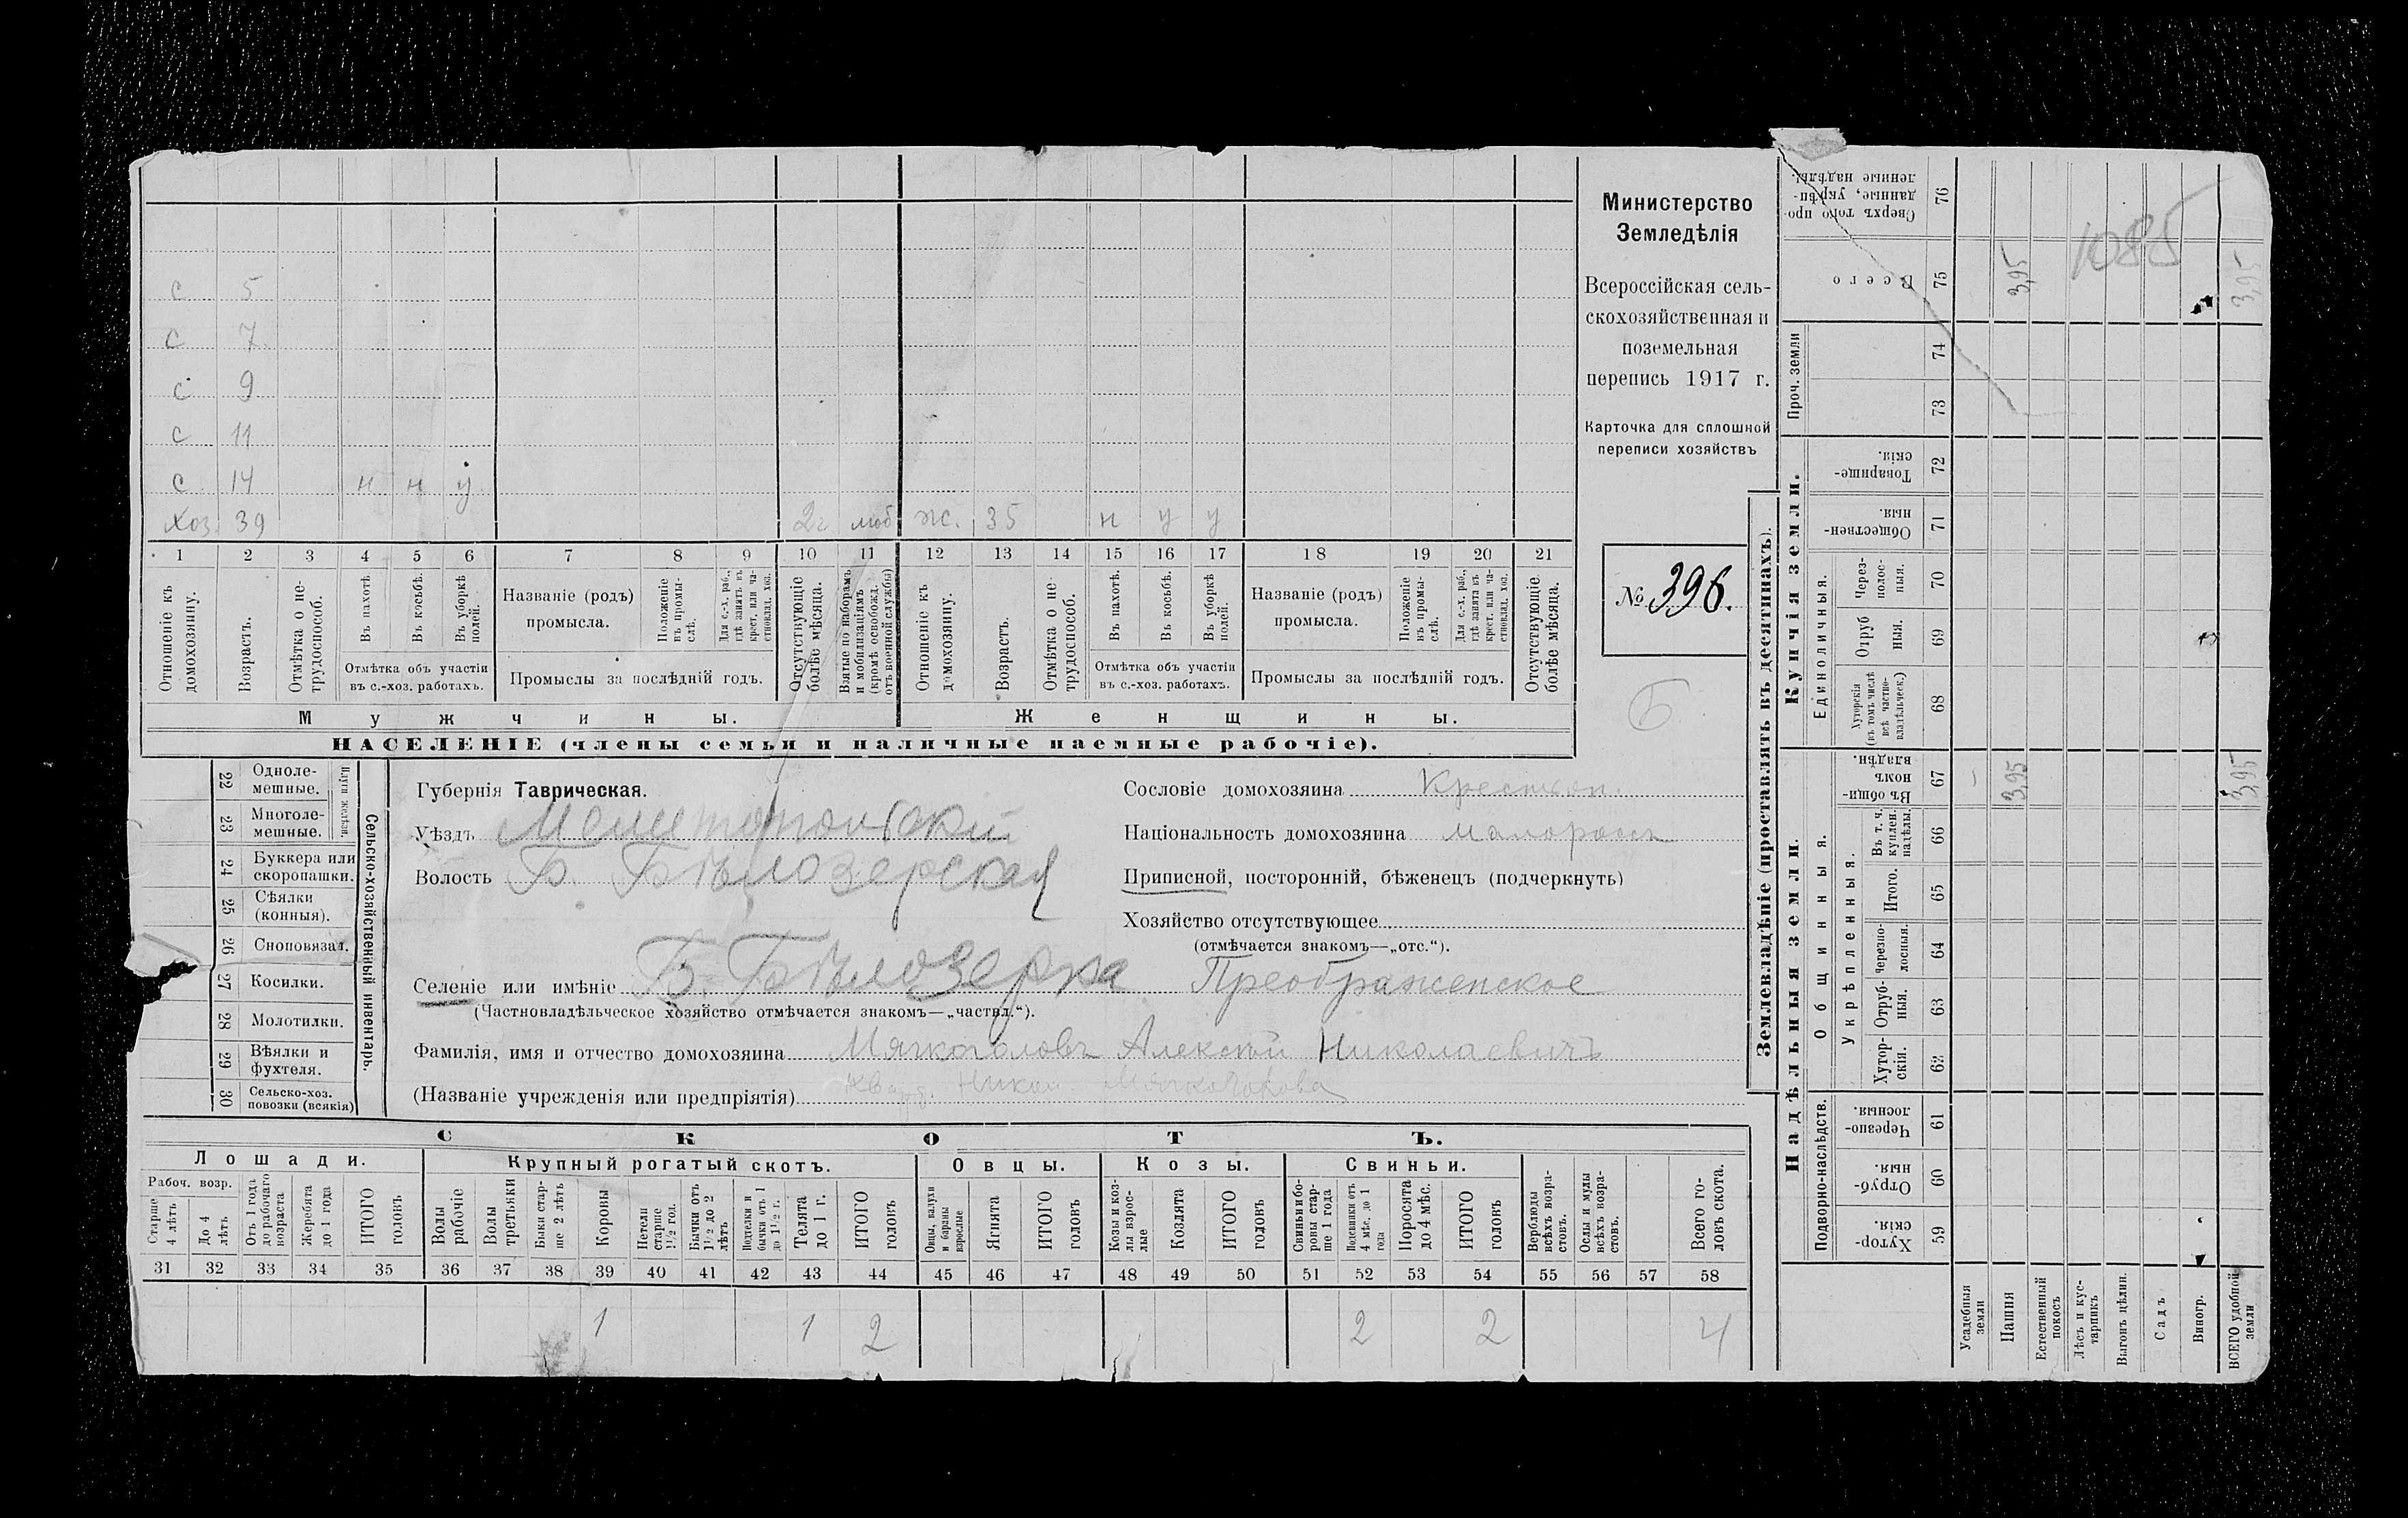 Министерство
Земледѣлія
Всероссійская сель-
скохозяйственная и
поземельная
перепись 1917 г.
Карточка для сплошной
переписи хозяйствъ
№ 396.
Б
с 5
с 7
с 9
с 11
с 14 н н у
Хоз. 39 2г моб ж. 35 н у у
1 2 3 4 5 6 7 8 9 10 11 12 13 14 15 16 17 18 19 20 21
Отношеніе къ домохозяину.
Возрастъ.
Отмѣтка о не-трудоспособ.
Въ пахотѣ.
Въ косьбѣ.
Въ уборкѣ полей.
Отмѣтка объ участіи
въ с.-хоз. работахъ.
Названіе (родъ)
промысла.
Положеніе въ промы-слѣ.
Для с.-х. раб., гдѣ занятъ въ крест. или ча-стновлад. хоз.
Промыслы за послѣдній годъ.
Отсутствующіе болѣе мѣсяца.
Взятые по наборамъ и мобилизаціямъ (кромѣ освобожд. отъ военной службы)
Отношеніе къ домохозяину.
Возрастъ.
Отмѣтка о не-трудоспособ.
Въ пахотѣ.
Въ косьбѣ.
Въ уборкѣ полей.
Отмѣтка объ участіи
въ с.-хоз. работахъ.
Названіе (родъ)
промысла.
Положеніе въ промы-слѣ.
Для с.-х. раб., гдѣ занята въ крест. или ча-стновлад. хоз.
Промыслы за послѣдній годъ.
Отсутствующіе болѣе мѣсяца.
Мужчины. Женщины.
НАСЕЛЕНІЕ (члены семьи и наличные наемные рабочіе).
22 Однолемешные.
23 Многолемешные.
Плуги желѣзн.
24 Буккера или скоропашки.
25 Сѣялки (конныя).
26 Сноповязал.
27 Косилки.
28 Молотилки.
29 Вѣялки и фухтеля.
30 Сельско-хоз. повозки (всякія)
Сельско-хозяйственный инвентарь.
Губернія Таврическая.
Уѣздъ Мелитопольскій
Волость Б. Бѣлозерская
Селеніе или имѣніе Б. Бѣлозерка Преображенское
(Частновладѣльческое хозяйство отмѣчается знакомъ—„частвл.“).
Фамилія, имя и отчество домохозяина Мягкоголовъ Алексѣй Николаевичъ
(Названіе учрежденія или предпріятія)
Сословіе домохозяина Крестьян.
Національность домохозяина малороссъ
Приписной, посторонній, бѣженецъ (подчеркнуть)
Хозяйство отсутствующее
(отмѣчается знакомъ—„отс.“).
СКОТЪ.
Лошади. Крупный рогатый скотъ. Овцы. Козы. Свиньи.
Рабоч. возр.
Старше 4 лѣтъ
До 4 лѣтъ
Отъ 1 года до рабочаго возраста
Жеребята до 1 года
ИТОГО головъ
Волы рабочіе
Волы третьяки
Быки стар-ше 2 лѣтъ
Коровы
Нетели старше 1½ год.
Бычки отъ 1½ до 2 лѣтъ
Подтелки и бычки отъ 1 до 1½ г.
Телята до 1 г.
ИТОГО головъ
Овцы, валухи и бараны взрослые
Ягнята
ИТОГО головъ
Козы и коз-лы взрос-лые
Козлята
ИТОГО головъ
Свиньи и бо-ровы стар-ше 1 года
Подсвинки отъ 4 мѣс. до 1 года
Поросята до 4 мѣс.
ИТОГО головъ
Верблюды всѣхъ возра-стовъ.
Ослы и мулы всѣхъ возра-стовъ.
Всего го-ловъ скота.
31 32 33 34 35 36 37 38 39 40 41 42 43 44 45 46 47 48 49 50 51 52 53 54 55 56 57 58
1 1 2 2 2 4
Землевладѣніе (проставлять въ десятинахъ).
Надѣльныя земли. Купчія земли. Проч. земли
Подворно-наслѣдств. Общинныя. Единоличныя.
Укрѣпленныя.
Хутор-скія. 59
Отруб-ныя. 60
Черезпо-лосныя. 61
Хутор-скія. 62
Отруб-ныя. 63
Черезпо-лосныя. 64
Итого. 65
Въ т. ч. куплен. надѣлы. 66
Въ общин-номъ владѣн. 67
Хуторскія (въ томъ числѣ всѣ частно-владѣльческ.) 68
Отруб ныя. 69
Через-полос-ныя. 70
Обществен-ныя. 71
Товарище-скія. 72
73
74
Всего 75
Сверхъ того про-данные, укрѣп-ленные надѣлы. 76
Усадебныя земли
Пашня 3,95 3,95
Естественный покосъ
Лѣсъ и кус-тарникъ
Выгонъ цѣлин.
Садъ
Виногр.
ВСЕГО удобной земли 3,95 3,95
1085